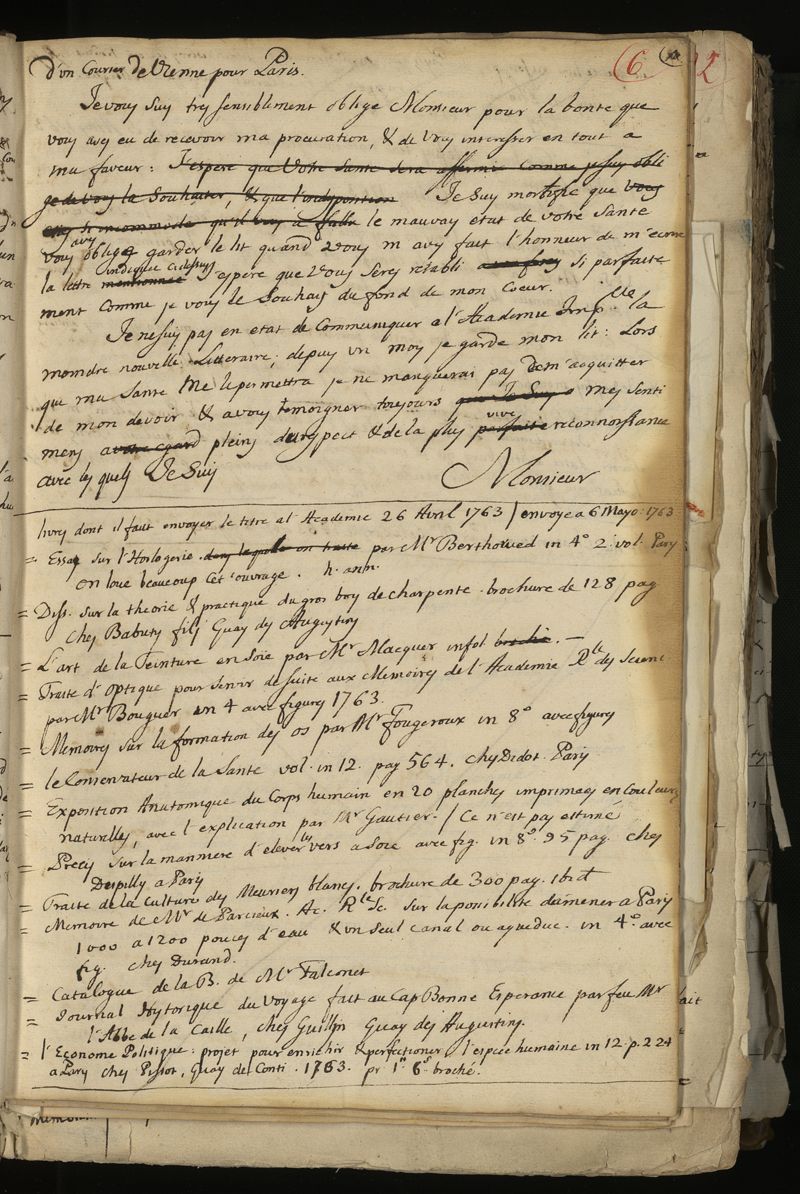 d'un Courier de Vienne pour Paris.
6
Je vous suy tres sensiblement oblige Monsieur pour la bonte que
vous aves eu de recevoir ma procuration, & de vous interesser en tout a
ma faveur : J'espere que Votre sante sera affermie comme je suy obli
ge de vous la Souhaiter, & que l'indisposition Je suy mortifié que vous
le mauvay état de votre Sante
vous oblige garder le lit quand vous m'avy fait l'honneur de m'ecrire
la lettre mentionnée indiquée cidessus j'espere que vous serey retabli si parfaite
ment comme je vous le Souhais du fond de mon Coeur.
Je ne suy pas en etat de Communiquer a l'Academie Imp.le la
moindre nouvelle Litteraire; depuy un moy je garde mon lit : Lors
que ma Sante me le permettra je ne manquerai pas de m'acquitter
de mon devoir & a vous temoigner toujours que Je Suy mes senti
mens a votre egard pleins de respect & de la plus parfaite vive reconnoissance
avec les quels Je Suy
Monsieur
livres dont il faut envoyer le titre a l'Academie 26 Avril 1763 / envoye a 6 Mayo : 1763
= Essay sur l'Horlogerie dans laquelle on traite par Mr Berthowed in 4° 2. vol. Pary
on loue beaucoup cet ouvrage.
= Diss. sur la theorie & practique du gros boy de charpente. brochure de 128 pag
chez Babuty fils Quay des Augustins
= L'art de la Teinture en Soie par Mr Macquer infol broché. —
= Traite d'optique pour servir de suite aux Memoires de l'Academie Rle des Scienc
par Mr Bouguer in 4 avec figures 1763.
= Memoires sur la formation des os par Mr Fougeroux in 8° avec figures
= le Conservateur de la Sante vol. in 12. pag 564. chez Didot. Pary
= Exposition Anatomique du Corps humain en 20 planches imprimées en Couleurs
naturelles, avec l'explication par Mr Gautier. / Ce n'est pas estimé
= Precis sur la manniere d'elever les vers a Soie avec fig. in 8°. 95 pag. chez
Despilly a Pary
= Traite de la Culture des Meuriers blancs. brochure de 300 pag. ibid
= Memoire de Mr de Parcieux. Ac. Rle Sc. sur la possibilité d'amener a Pary
1000 a 1200 pouces d'eau & un seul canal ou aqueduc. in 4°. avec
fig. chez Durand.
= Catalogue de la B. de Mr Falconet
= Journal Hystorique du Voyage fait au Cap Bonne Esperance par feu Mr
l'Abbé de la Caille, chez Guillyn Quay des Augustins.
= l'Econome Politique : projet pour enrichir & perfectioner l'espece humaine in 12. p. 224
a Pary chez Pissot, Quay de Conti. 1763. pr 1# 6s broché.